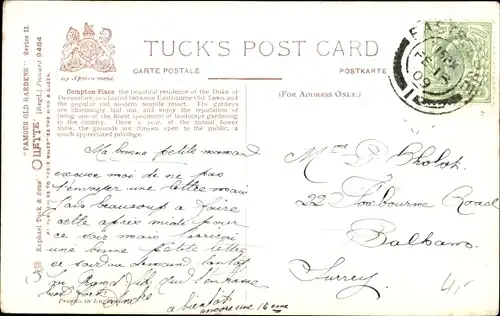 TUCK'S POST CARD
By Appointment.
CARTE POSTALE
POSTKARTE
Compton Place, the beautiful residence of the Duke of
Devonshire, is situated between Eastbourne Old Town and
the popular and modern seaside resort. The gardens
are charmingly laid out, and enjoy the reputation of
being one of the finest specimens of landscape gardening
in the country. Once a year, at the annual flower
show, the grounds are thrown open to the public, a
much appreciated privilege.
(FOR ADDRESS ONLY.)
"FAMOUS OLD GARDENS" Series II.
"OILETTE" [Regd.] Postcard 9484
Raphael Tuck & Sons'
ART PUBLISHERS TO THEIR MAJESTIES THE KING & QUEEN.
Ma bonne petite maman
excuse moi de ne pas
t'envoyer une lettre mais
fais beaucoup a faire
cette après midi pour
ce soir mais
une bonne petite lettre
ce soir ou demain
un Grand
a bientôt
encore une 16 eme
Mme D. Cholot
22 Foxbourne Road
Balham
Surrey
4/-